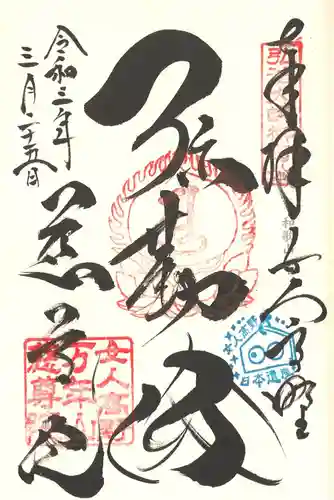 奉拝 女人高野
弥勒佛
慈尊院
令和三年
三月二十五日
女人高野
万年山
慈尊院
女人高野
日本遺産